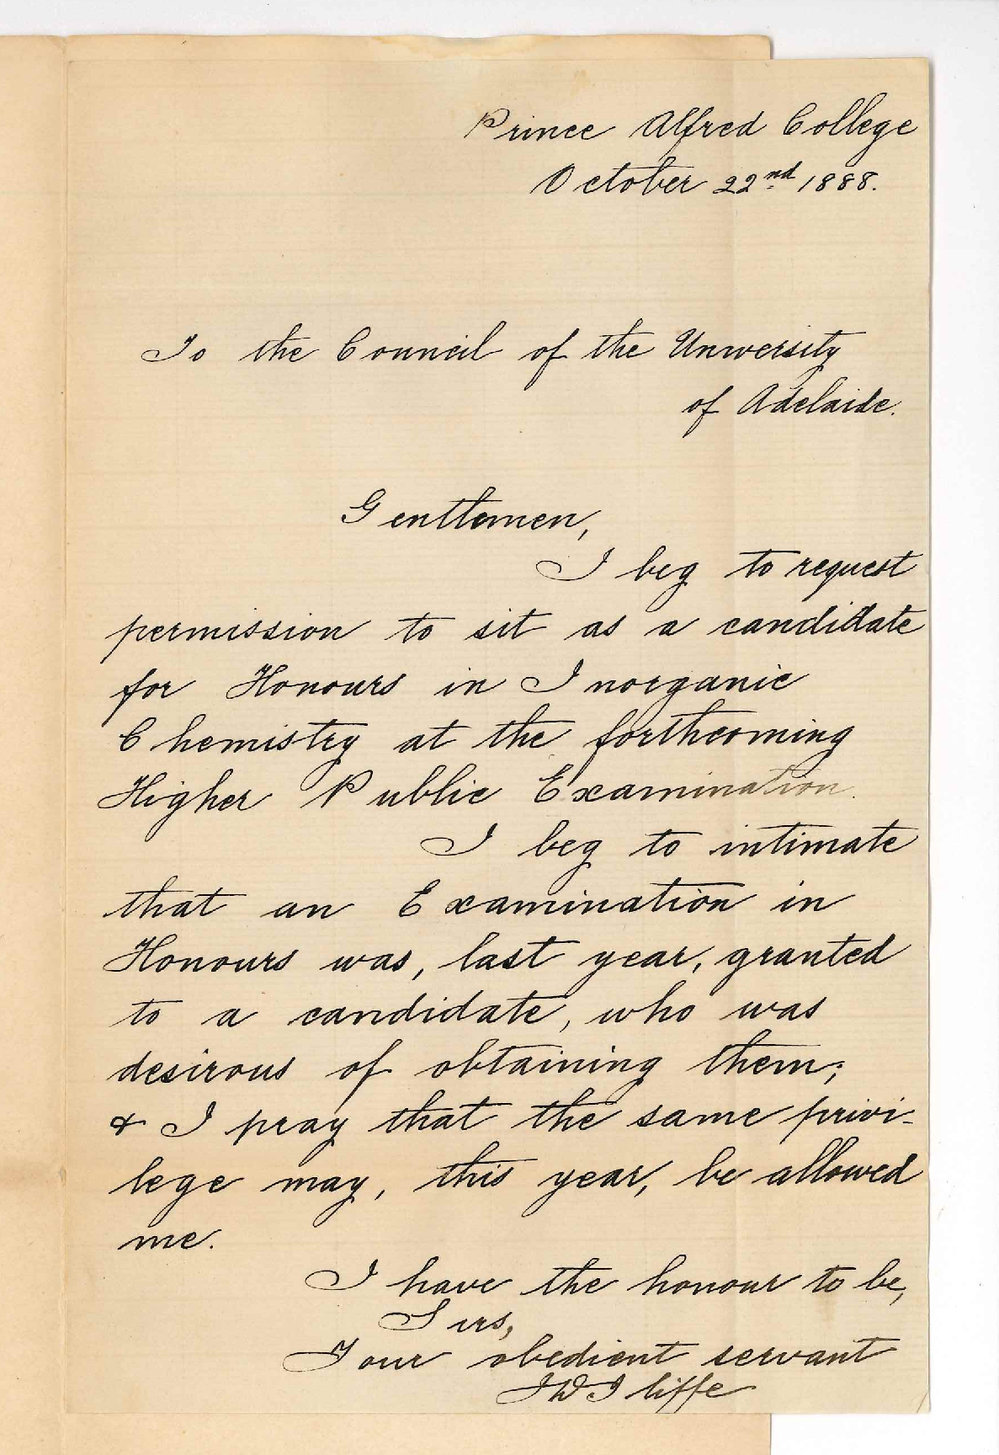 Prince Alfred College
October 22nd 1888.
To the Council of the University
of Adelaide.
Gentlemen,
I beg to request
permission to sit as a candidate
for Honours in Inorganic
Chemistry at the forthcoming
Higher Public Examination.
I beg to intimate
that an Examination in
Honours was, last year, granted
to a candidate, who was
desirous of obtaining them;
& I pray that the same privi-
lege may, this year, be allowed
me.
I have the honour to be,
Sirs,
Your obedient servant
JWIliffe